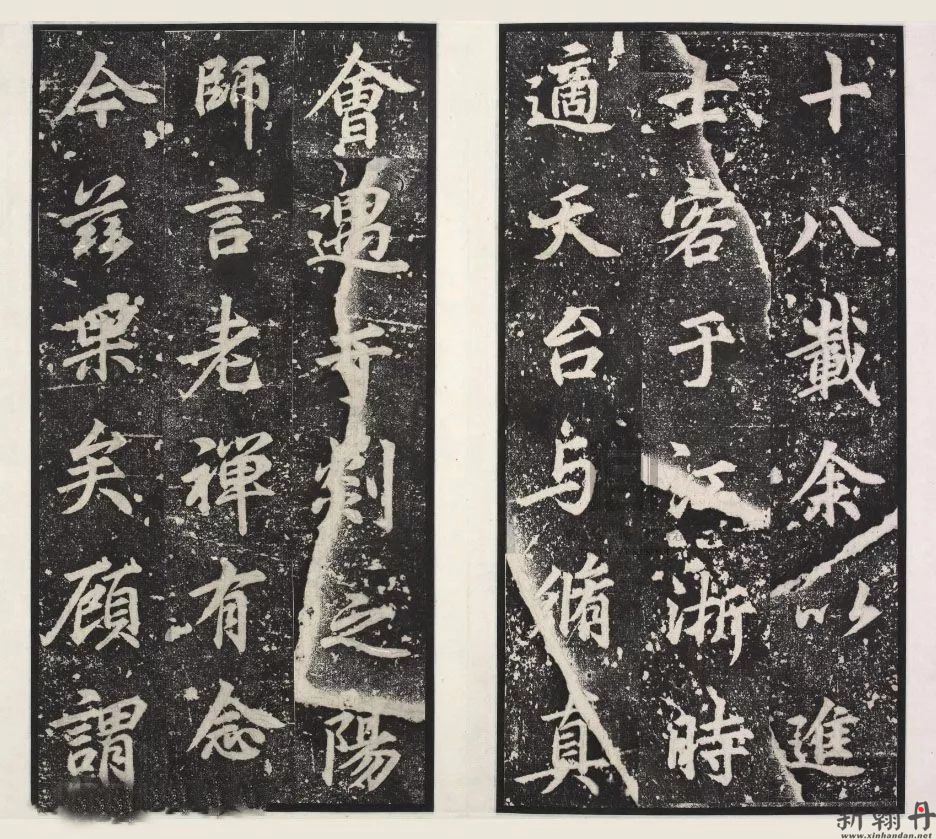 十八載余以進
士客于江浙時
適天台与脩真
會遇寺剡之陽
師言老禪有念
今茲果矣顧謂
新翰丹
www.xinhandan.net